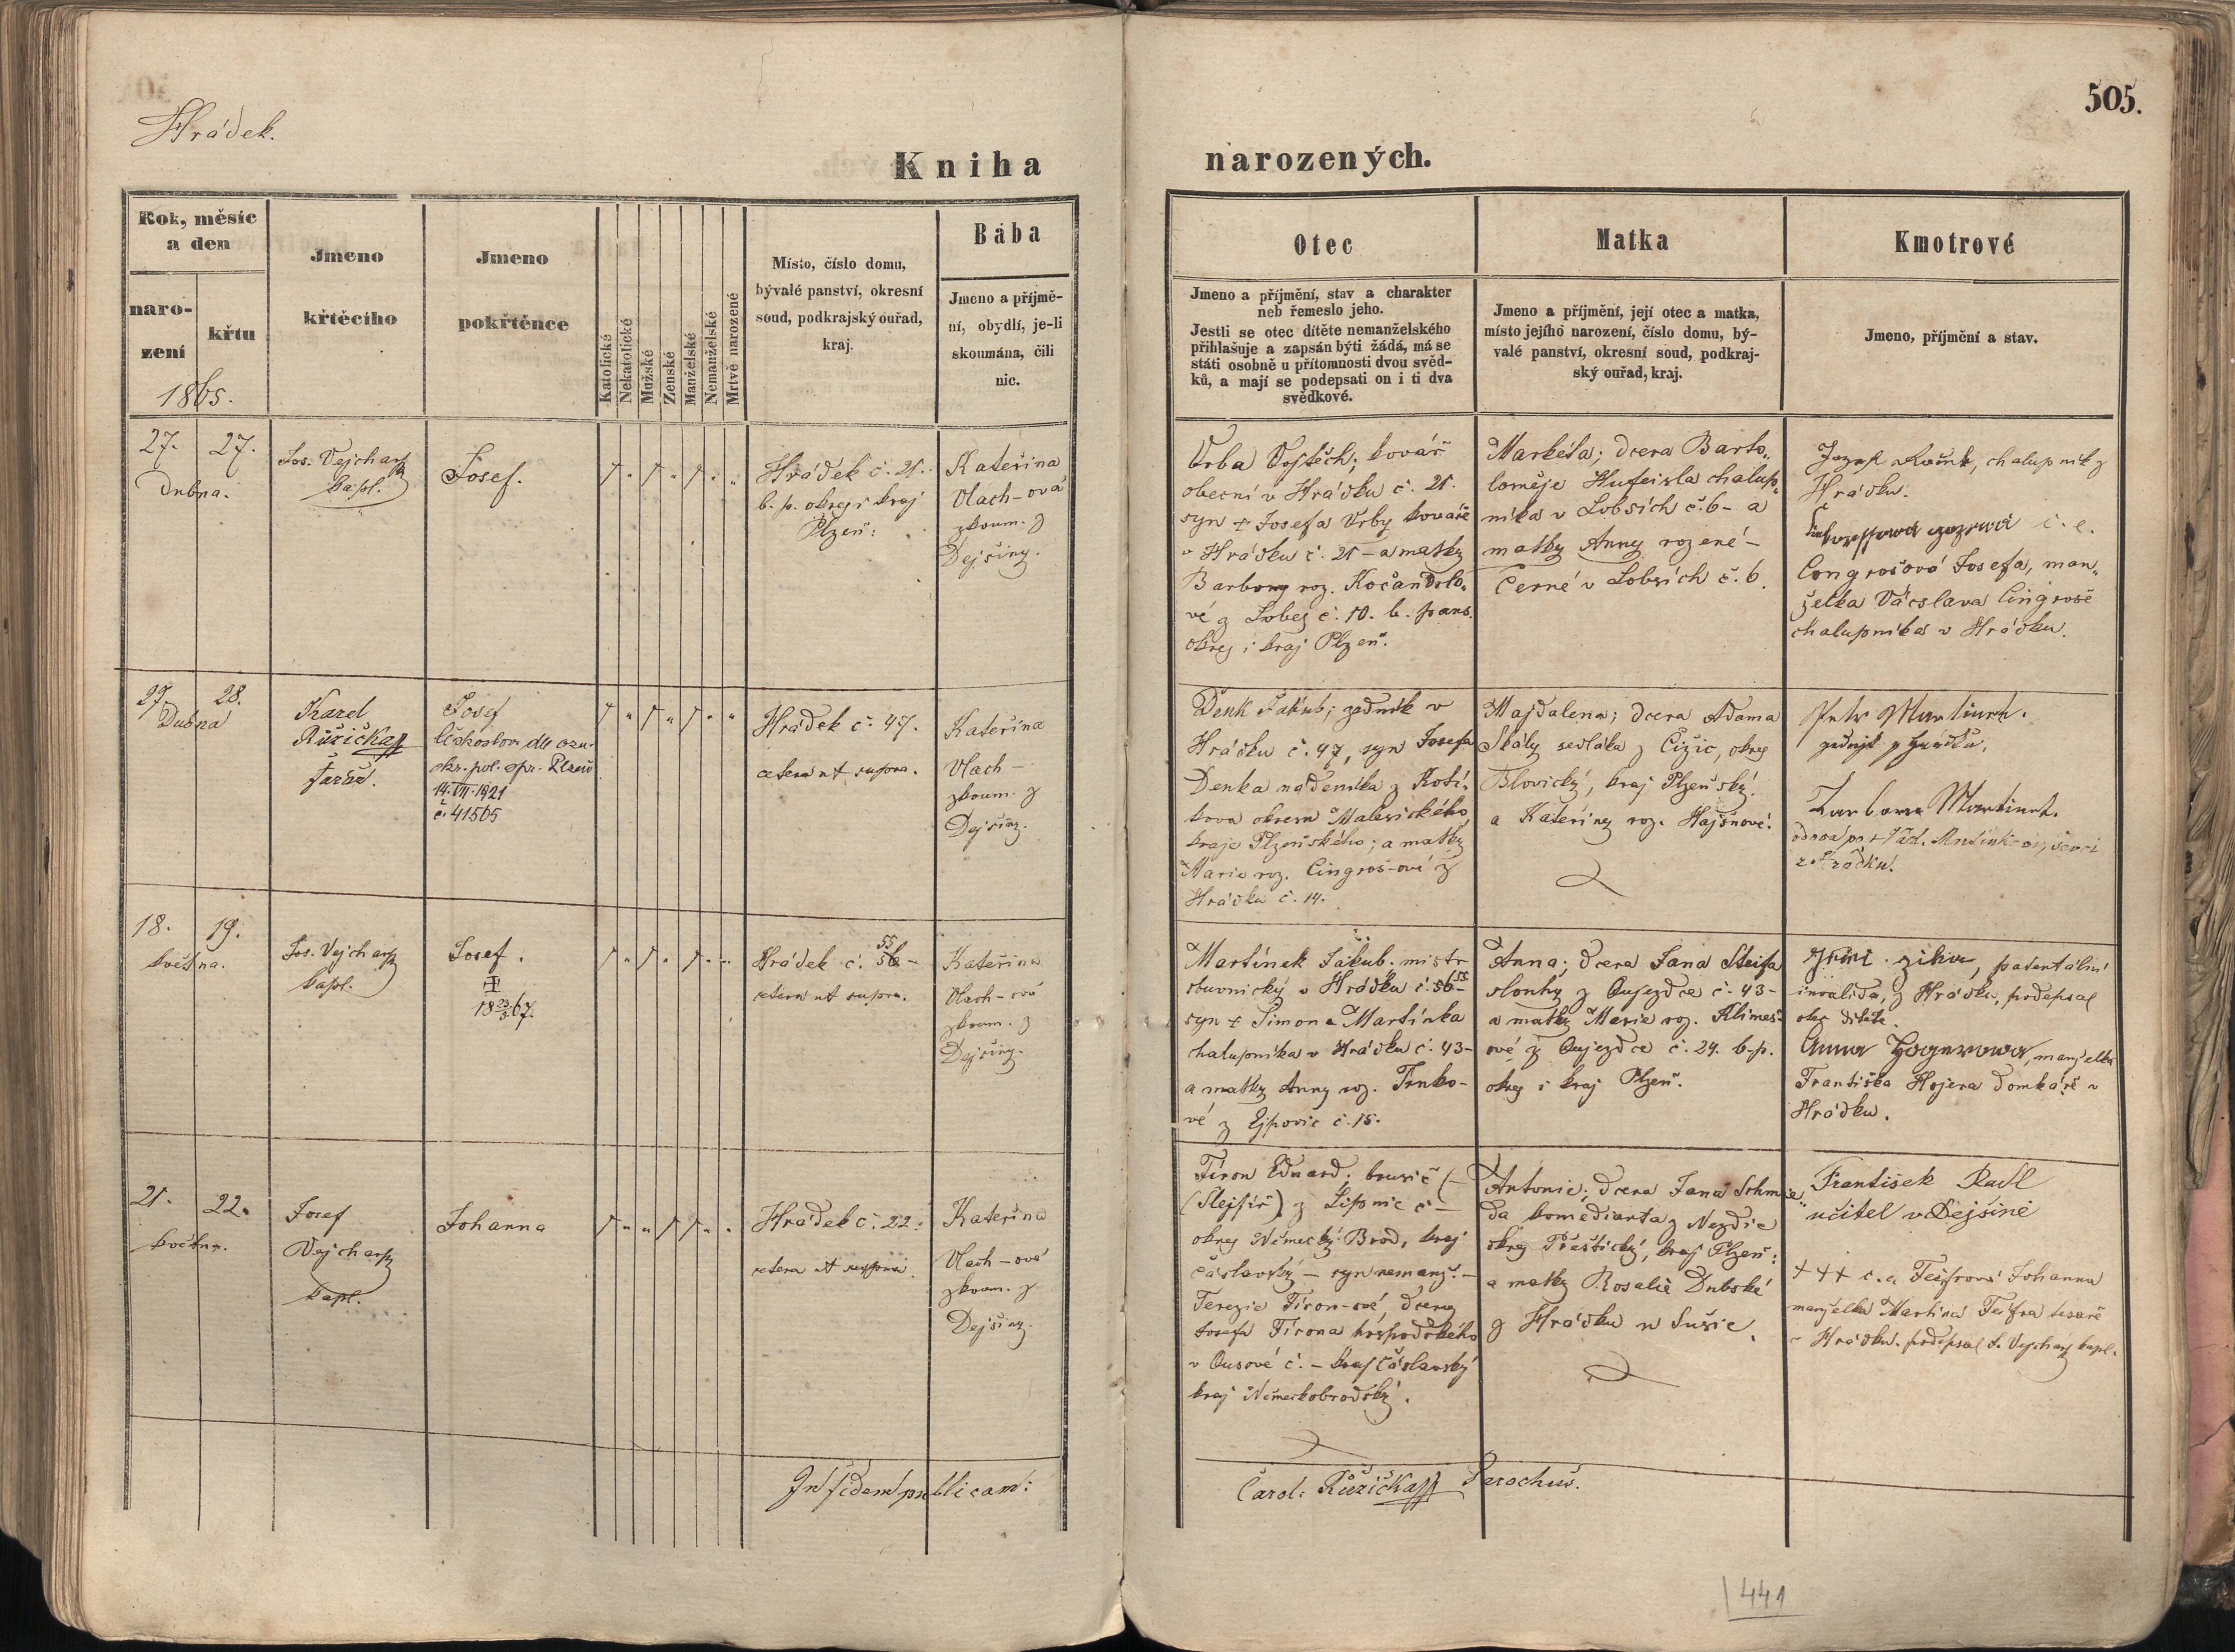 505.
Hrádek.
Kniha narozených.
Rok, měsíc
a den
naro-
zení
křtu
1865.
Jmeno
křtěcího
Jmeno
pokřtěnce
Katolické
Nekatolické
Mužské
Ženské
Manželské
Nemanželské
Mrtvě narozené
Místo, číslo domu,
bývalé panství, okresní
soud, podkrajský ouřad,
kraj.
Bába
Jmeno a příjmě-
ní, obydlí, je-li
skoumána, čili
nic.
Otec
Jmeno a příjmění, stav a charakter
neb řemeslo jeho.
Jestli se otec dítěte nemanželského
přihlašuje a zapsán býti žádá, má se
státi osobně u přítomnosti dvou svěd-
ků, a mají se podepsati on i ti dva
svědkové.
Matka
Jmeno a příjmění, její otec a matka,
místo jejího narození, číslo domu, bý-
valé panství, okresní soud, podkraj-
ský ouřad, kraj.
Kmotrové
Jmeno, příjmění a stav.
27. 27.
Dubna.
Jos. Vejchar
kapl.
Josef.
Hrádek č. 21.
b. p. okres i kraj
Plzeň:
Kateřina
Vlach-ová
zkoum. z
Dejšiny.
Vrba Vojtěch; kovář
obecní v Hrádku č. 21.
syn + Josefa Vrby kováře
v Hrádku č. 21 - a matky
Barbory roz. Kočandrlo-
vé z Lobez č. 10. b. pans.
okres i kraj Plzeň.
Markéta; dcera Barto-
loměje Hufeisla chalup-
níka v Lobzích č. 6 - a
matky Anny rozené -
Černé v Lobzích č. 6.
chalupník z
Hrádku.
č. e.
Cingrošová Josefa, man-
želka Václava Cingroše
chalupníka v Hrádku.
27. 28.
Dubna
Karel
Růžička
farář.
Josef
českoslov. dle ozn.
okr. pol. spr. Plzeň
14. VII. 1921
č. 41505
Hrádek č. 47.
cetera ut supra.
Kateřina
Vlach-
zkoum. z
Dejšiny.
Denk Jakub; zedník v
Hrádku č. 47, syn Josefa
Denka nádeníka z Kotí-
kova okresu Malesického,
kraje Plzeňského; a matky
Marie roz. Cingroš-ové z
Hrádku č. 14.
Majdalena; dcera Adama
Skály sedláka z Čižic, okres
Blovický, kraj Plzeňský.
a Kateřiny roz. Hajšnové.
Petr Martinek.
zedník z Hrádku.
Barbora Martinek.
vdova po + Vác. Martinkovi, ševci
z Hrádku.
18. 19.
května.
Jos. Vejchar
kapl.
Josef.
‡
18 23/5 67.
Hrádek č. 56 - 55
cetera ut supra.
Kateřina
Vlach-ová
zkoum. z
Dejšiny.
Martínek Jakub. mistr
obuvnický v Hrádku č. 56 - 55
syn + Šimona Martínka
chalupníka v Hrádku č. 43 -
a matky Anny roz. Trnko-
vé z Ejpovic č. 15.
Anna; dcera Jana Steifa
slouhy z Oujezdce č. 43 -
a matky Marie roz. Klimeš-
ové z Oujezdce č. 24. b. p.
okres i kraj Plzeň.
patentální
invalida, z Hrádku, podepsal
otec dítěte.
Anna Hogerowa, manželka
Františka Hojera domkáře v
Hrádku.
21. 22.
května.
Josef
Vejchar
kapl.
Johanna
Hrádek č. 22:
cetera ut supra
Kateřina
Vlach-ová
zkoum. z
Dejšiny.
Tíron Eduard; brusič
(Šlejfíř) z Lipnic č -
okres Německý Brod, kraj
čáslavský - syn nemanž. -
Terezie Tíron-ové, dcery
Josefa Tírona hospodského
v Ousové č. - kraj čáslavský
kraj Německobrodský.
Antonie; dcera Jana Schmie-
da komedianta z Nezdic
okres Přeštický, kraj Plzeň:
a matky Rosalie Dubské
z Hrádku u Sušic.
František Radl
učitel v Dejšině
+++ č. a Teifrová Johanna
manželka Martina Teifra tesaře
v Hrádku. podepsal J. Vejchar kapl.
In fidem publicam:
Carol: Růžička Parochus.
441